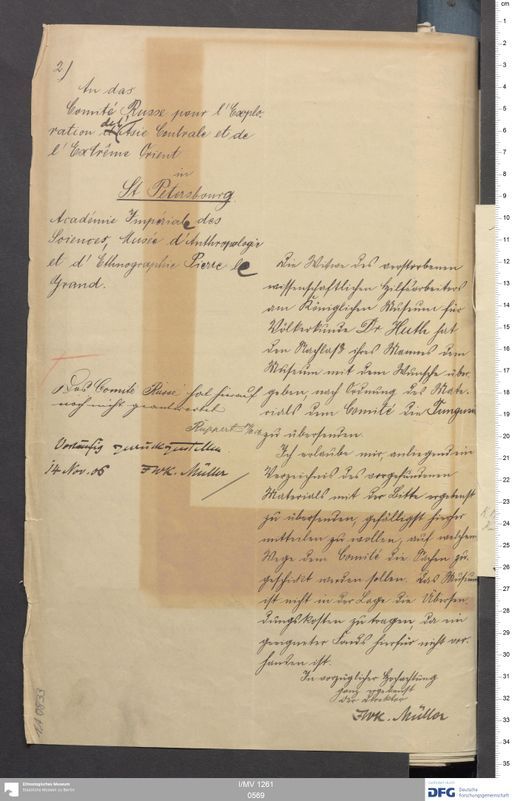 2)
An das
Comité Russe pour l'Explo-
ration de l'Asie Centrale et de
l'Extrême Orient
in
St Petersbourg.
Académie Impériale des
Sciences, Musée d'Anthropologie
et d'Ethnographie Pierre le
Grand.
Die Witwe des verstorbenen
wissenschaftlichen Hilfsarbeiters
am Königlichen Museum für
Völkerkunde Dr. Huth hat
den Nachlaß ihres Mannes dem
Museum mit dem Wunsche über-
geben, nach Ordnung des Mate-
rials dem Comité die Tungusica
zu übersenden.
Ich erlaube mir, anliegend ein
Verzeichnis des vorgefundenen
Materials mit der Bitte ergebenst
zu übersenden, gefälligst hierher
mitteilen zu wollen, auf welchem
Wege dem Comité die Sachen zu-
geschickt werden sollen. Das Museum
ist nicht in der Lage die Übersen-
dungskosten zu tragen, da ein
geeigneter Fonds hierfür nicht vor-
handen ist.
In vorzüglicher Hochachtung
ganz ergebenst
der Direktor
FWK. Müller
Das Comité Russe hat hierauf
noch nicht geantwortet
Ruppert
Vorläufig zurückzustellen
14 Nov. 06 FWK. Müller
Ethnologisches Museum
Staatliche Museen zu Berlin
I/MV 1261
0569
Gefördert durch
DFG Deutsche
Forschungsgemeinschaft